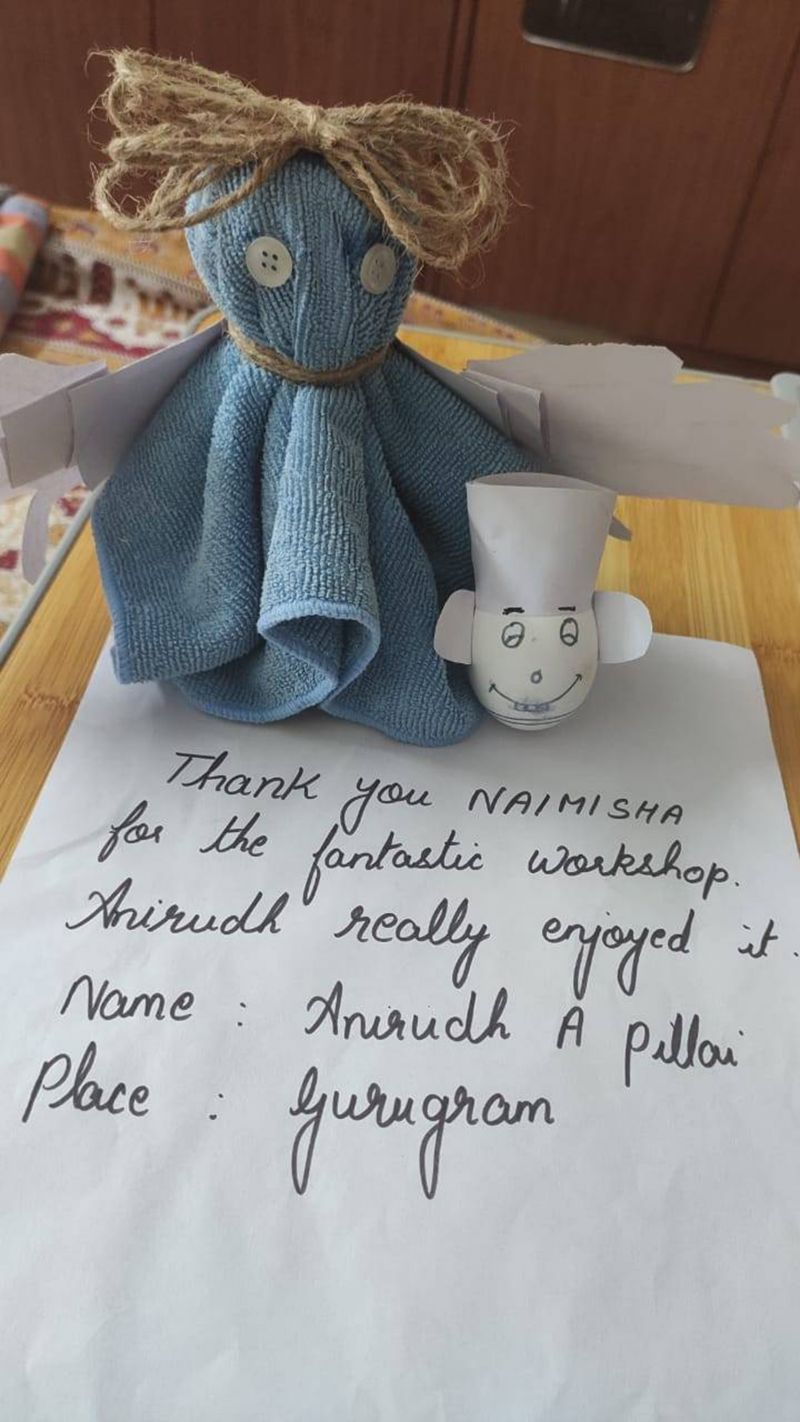 Thank you NAIMISHA
for the fantastic workshop.
Anirudh really enjoyed it.
Name : Anirudh A Pillai
Place : Gurugram